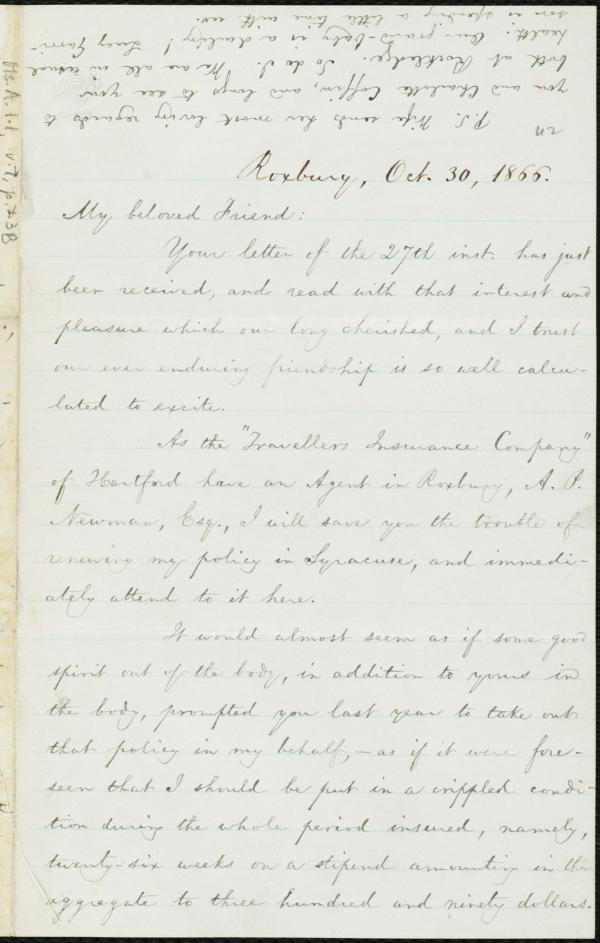 P.S. Wife sends her most loving regards to
you and Charlotte Coffin, and longs to see you
both at Rockledge. So do I. We are all in usual
health. Our grand-baby is a darling! Lucy Garri-
son is spending a little time with us.
Ms. A. 1. 1, v. 7, p. 23B
Roxbury, Oct. 30, 1866.
My beloved Friend:
Your letter of the 27th inst. has just
been received, and read with that interest and
pleasure which our long cherished, and I trust
our ever enduring friendship is so well calcu-
lated to excite.
As the "Travellers Insurance Company"
of Hartford have an Agent in Roxbury, A. P.
Newman, Esq., I will save you the trouble of
renewing my policy in Syracuse, and immedi-
ately attend to it here.
It would almost seem as if some good
spirit out of the body, in addition to yours in
the body, prompted you last year to take out
that policy in my behalf, – as if it were fore-
seen that I should be put in a crippled condi-
tion during the whole period insured, namely,
twenty-six weeks on a stipend amounting in the
aggregate to three hundred and ninety dollars.